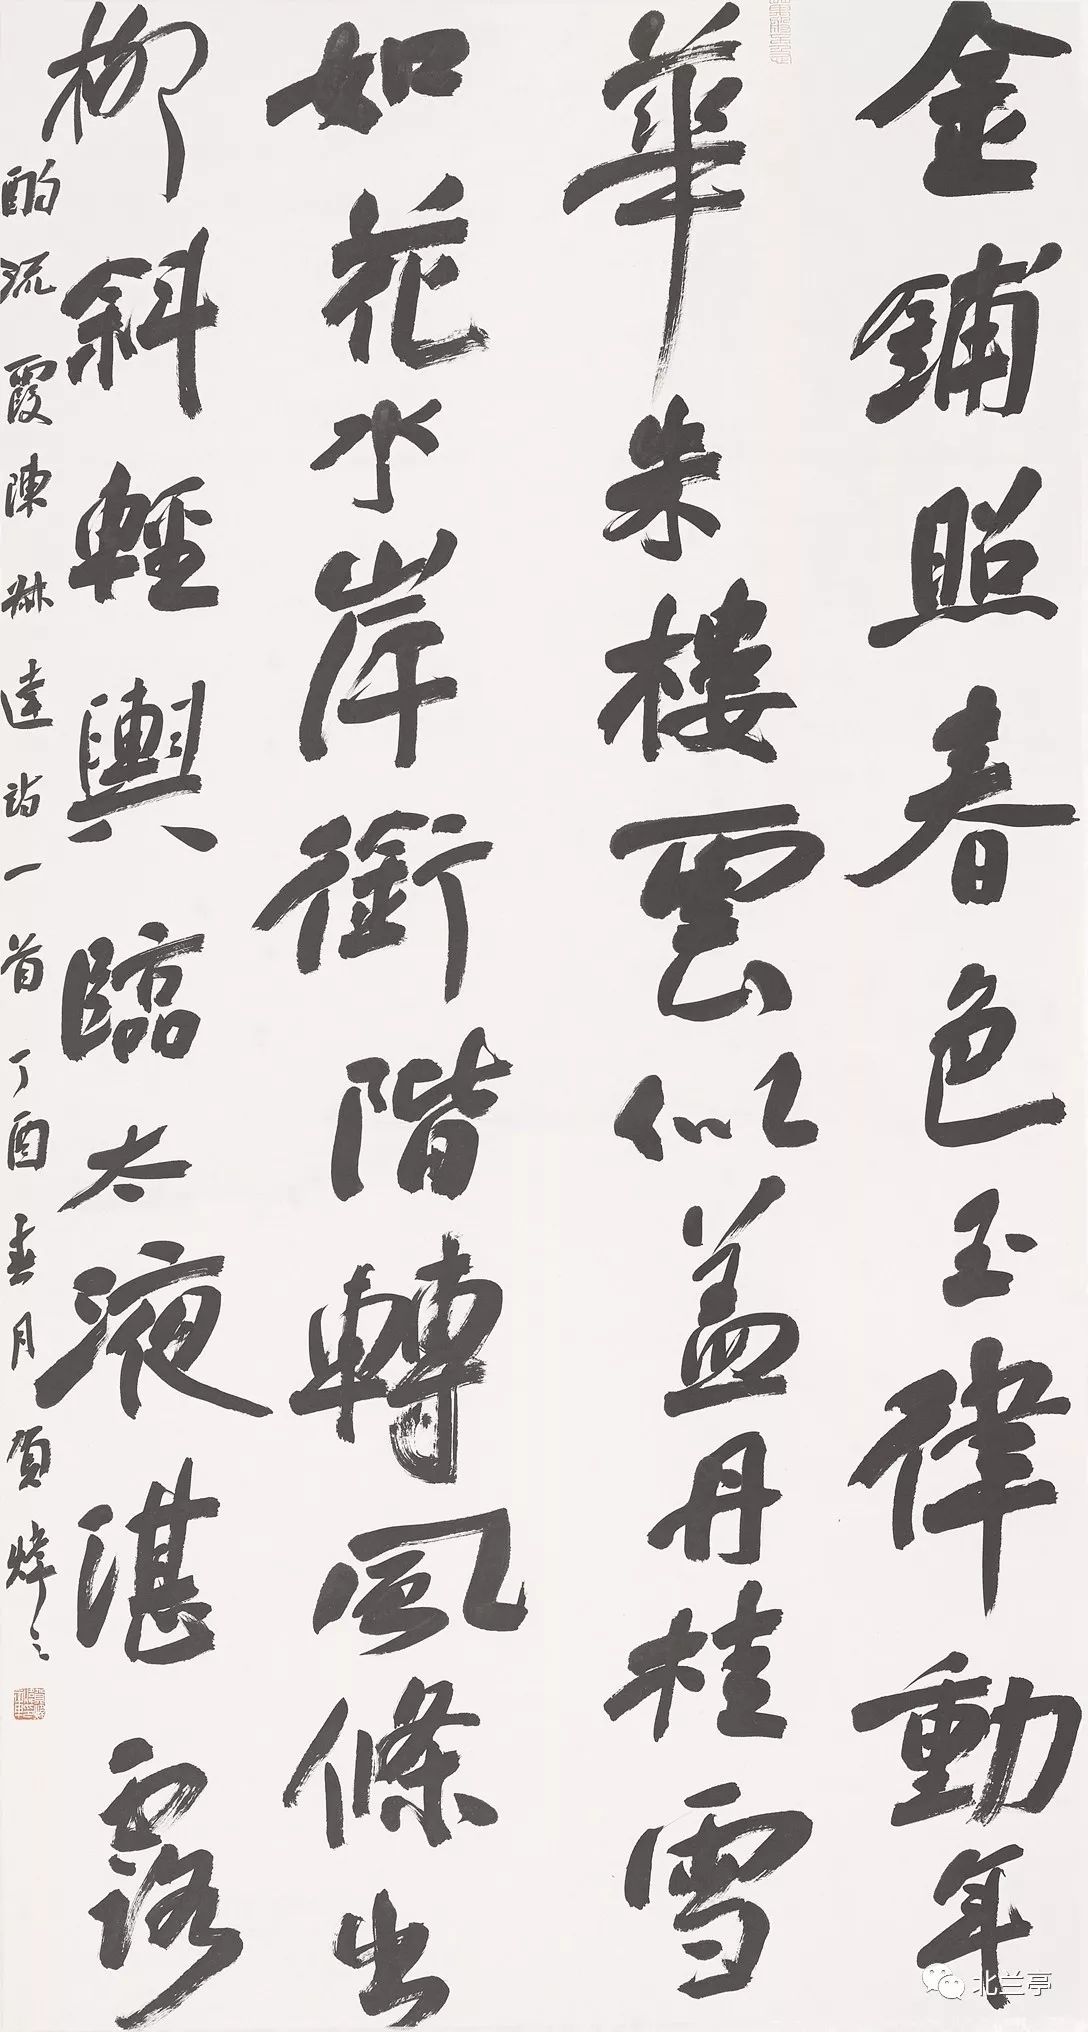 金鋪照春色玉律動年
華朱樓雲似蓋丹桂雪
如花水岸銜階轉風條出
柳斜輕輿臨太液湛露
酌流霞陳叔達詩一首丁酉春月賀煒之
北兰亭